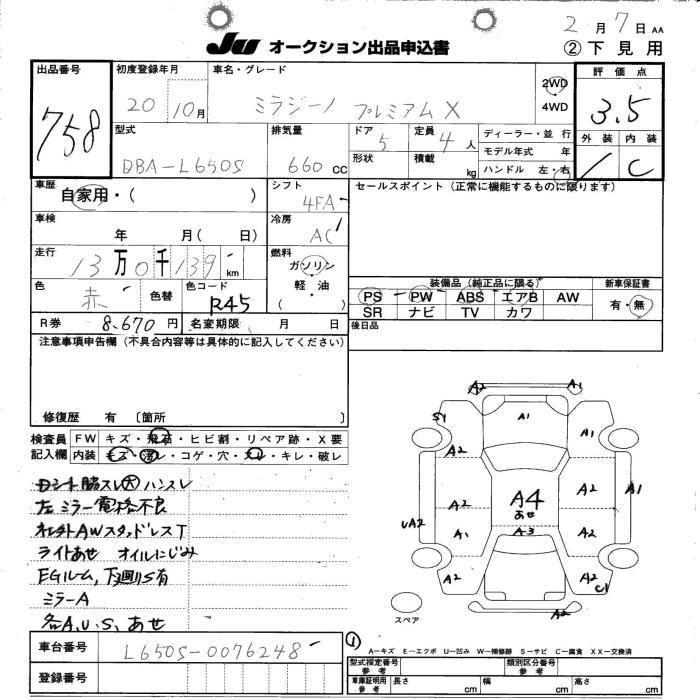 2月7日 AA
JU オークション出品申込書 ②下見用
出品番号 758
初度登録年月 20 10月
車名・グレード ミラジーノ プレミアムX
2WD・4WD
評価点 3.5
外装 内装 C
型式 DBA-L650S
排気量 660 cc
ドア 5
形状
定員 4人
積載 kg
ディーラー・並行
モデル年式 年
ハンドル 左・右
車歴 自家用・( )
シフト 4FA
セールスポイント(正常に機能するものに限ります)
車検 年 月( 日)
冷房 AC
走行 13万0千139 km
燃料 ガソリン・軽・油 ( )
色 赤 色替 色コード R45
装備品(純正品に限る) 新車保証書
PS PW ABS エアB AW 有・無
SR ナビ TV カワ
R券 8,670円 名変期限 月 日
後日品
注意事項申告欄(不具合内容等は具体的に記入してください)
修復歴 有 〔箇所 〕
検査員記入欄
FW キズ・飛石・ヒビ割・リペア跡・X要
内装 キズ・汚レ・コゲ・穴・スレ・キレ・破レ
Dシート脇スレ大 ハンスレ
左ミラー電格不良
社外AWスタッドレスT
ライトあせ オイルにじみ
EGルーム,下廻りS有
ミラーA
各A,U,S,あせ
A2 A1
S1 A1 A1
A2 A2
A2 A4 あせ A2 A1
UA2 A1 A3 A2
A2 A2 C1
A2
スペア
車台番号 L650S-0076248
登録番号
①
A―キズ E―エクボ U―凹み W―補修跡 S―サビ C―腐食 XX―交換済
型式指定番号 参考 類別区分番号 参考
車庫証明用 参考 長さ cm 幅 cm 高さ cm